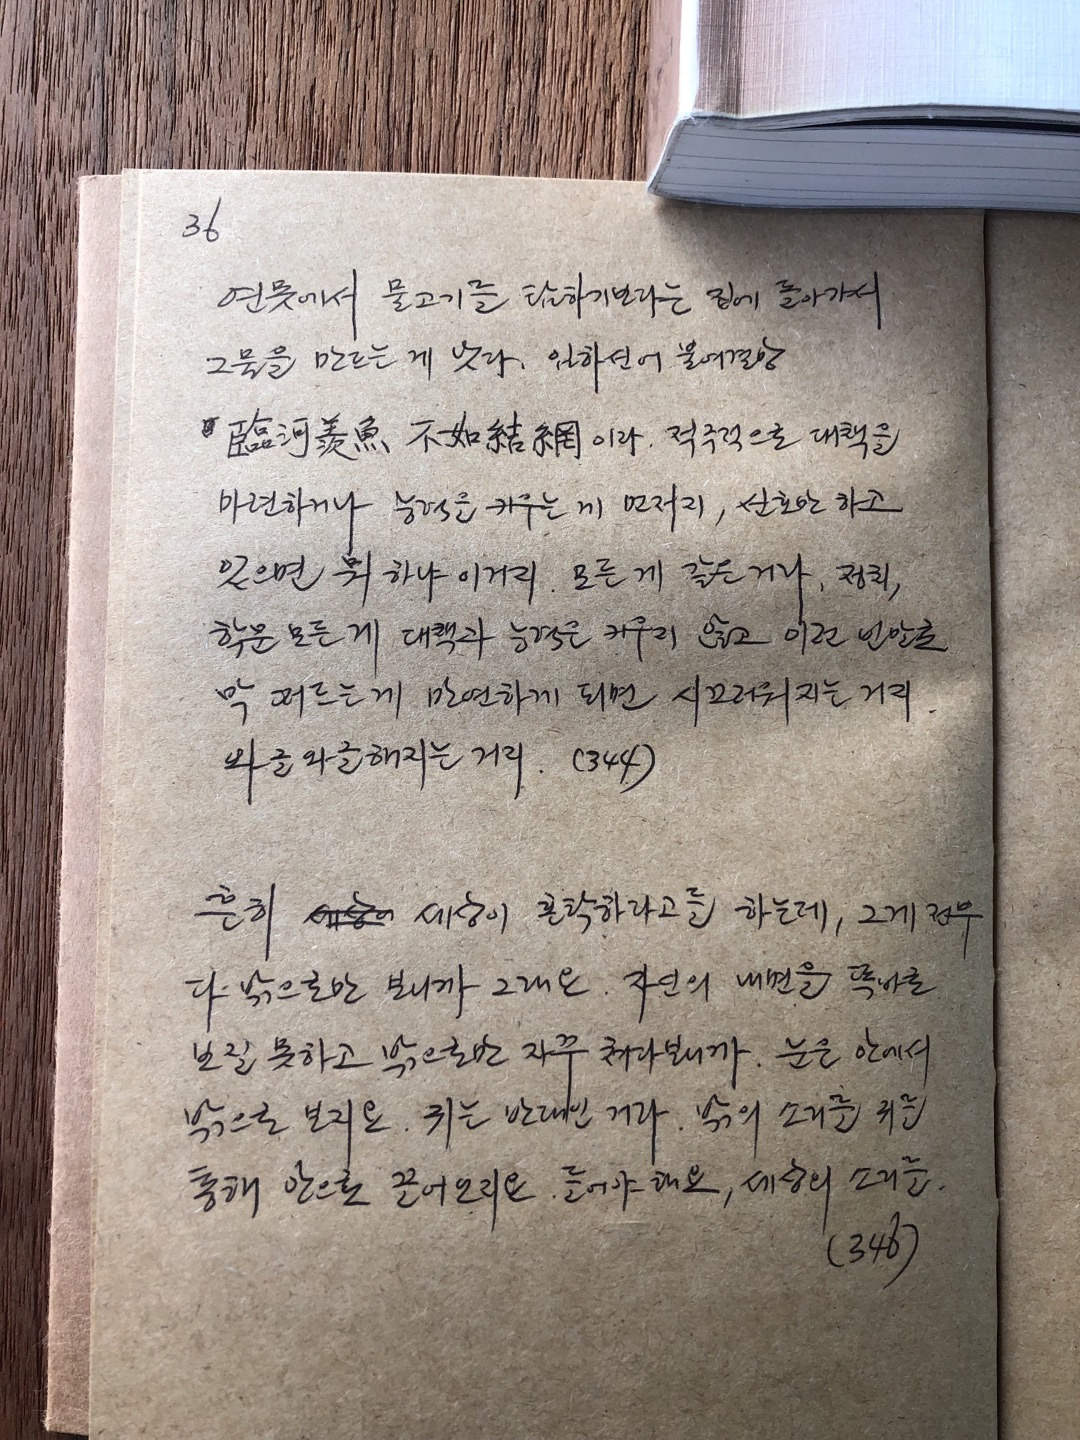 36
연못에서 물고기를 탐하기보다는 집에 돌아가서
그물을 만드는 게 낫다. 임하선어 불여결망
臨河羨魚 不如結網이라. 적극적으로 대책을
마련하거나 능력을 키우는 게 먼저지, 선호만 하고
있으면 뭐 하냐 이거지. 모든 게 같은 거라, 정치,
학문 모든 게 대책과 능력은 키우지 않고 이런
막 떠드는 게 만연하게 되면 시끄러워지는 거지.
와글와글해지는 거지. (344)
흔히 세상이 혼탁하라고들 하는데, 그게 전부
다 밖으로만 보니까 그래요. 자신의 내면을 똑바로
보질 못하고 밖으로만 자꾸 쳐다보니까. 눈은 안에서
밖으로 보지요. 귀는 반대인 거라. 밖의 소리를 귀를
통해 안으로 끌어오지요. 들어야 해요, 세상의 소리를.
(346)